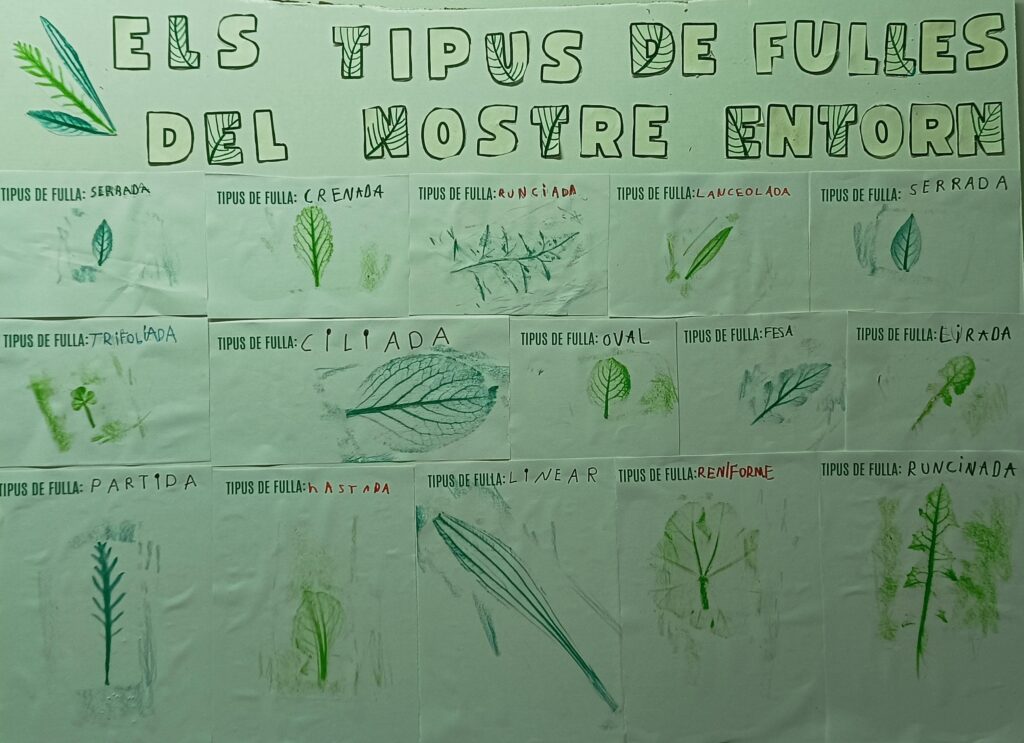 ELS TIPUS DE FULLES
DEL NOSTRE ENTORN
TIPUS DE FULLA: SERRADA
TIPUS DE FULLA: CRENADA
TIPUS DE FULLA: RUNCIADA
TIPUS DE FULLA: LANCEOLADA
TIPUS DE FULLA: SERRADA
TIPUS DE FULLA: TRIFOLIADA
TIPUS DE FULLA: CILIADA
TIPUS DE FULLA: OVAL
TIPUS DE FULLA: FESA
TIPUS DE FULLA: LIRADA
TIPUS DE FULLA: PARTIDA
TIPUS DE FULLA: hASTADA
TIPUS DE FULLA: LINEAR
TIPUS DE FULLA: RENIFORME
TIPUS DE FULLA: RUNCINADA